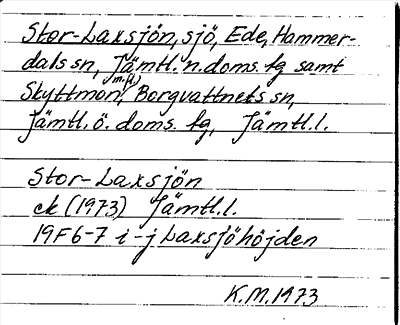 Stor-Laxsjön, sjö, Ede, Hammer-
dals sn, Jämtl. n. doms. fg samt
Skyttmon, (m.fl.) Borgvattnets sn,
Jämtl. ö. doms. fg, Jämtl. l.
Stor-Laxsjön
ek (1973) Jämtl. l.
19F 6-7 i-j Laxsjöhöjden
K.M. 1973